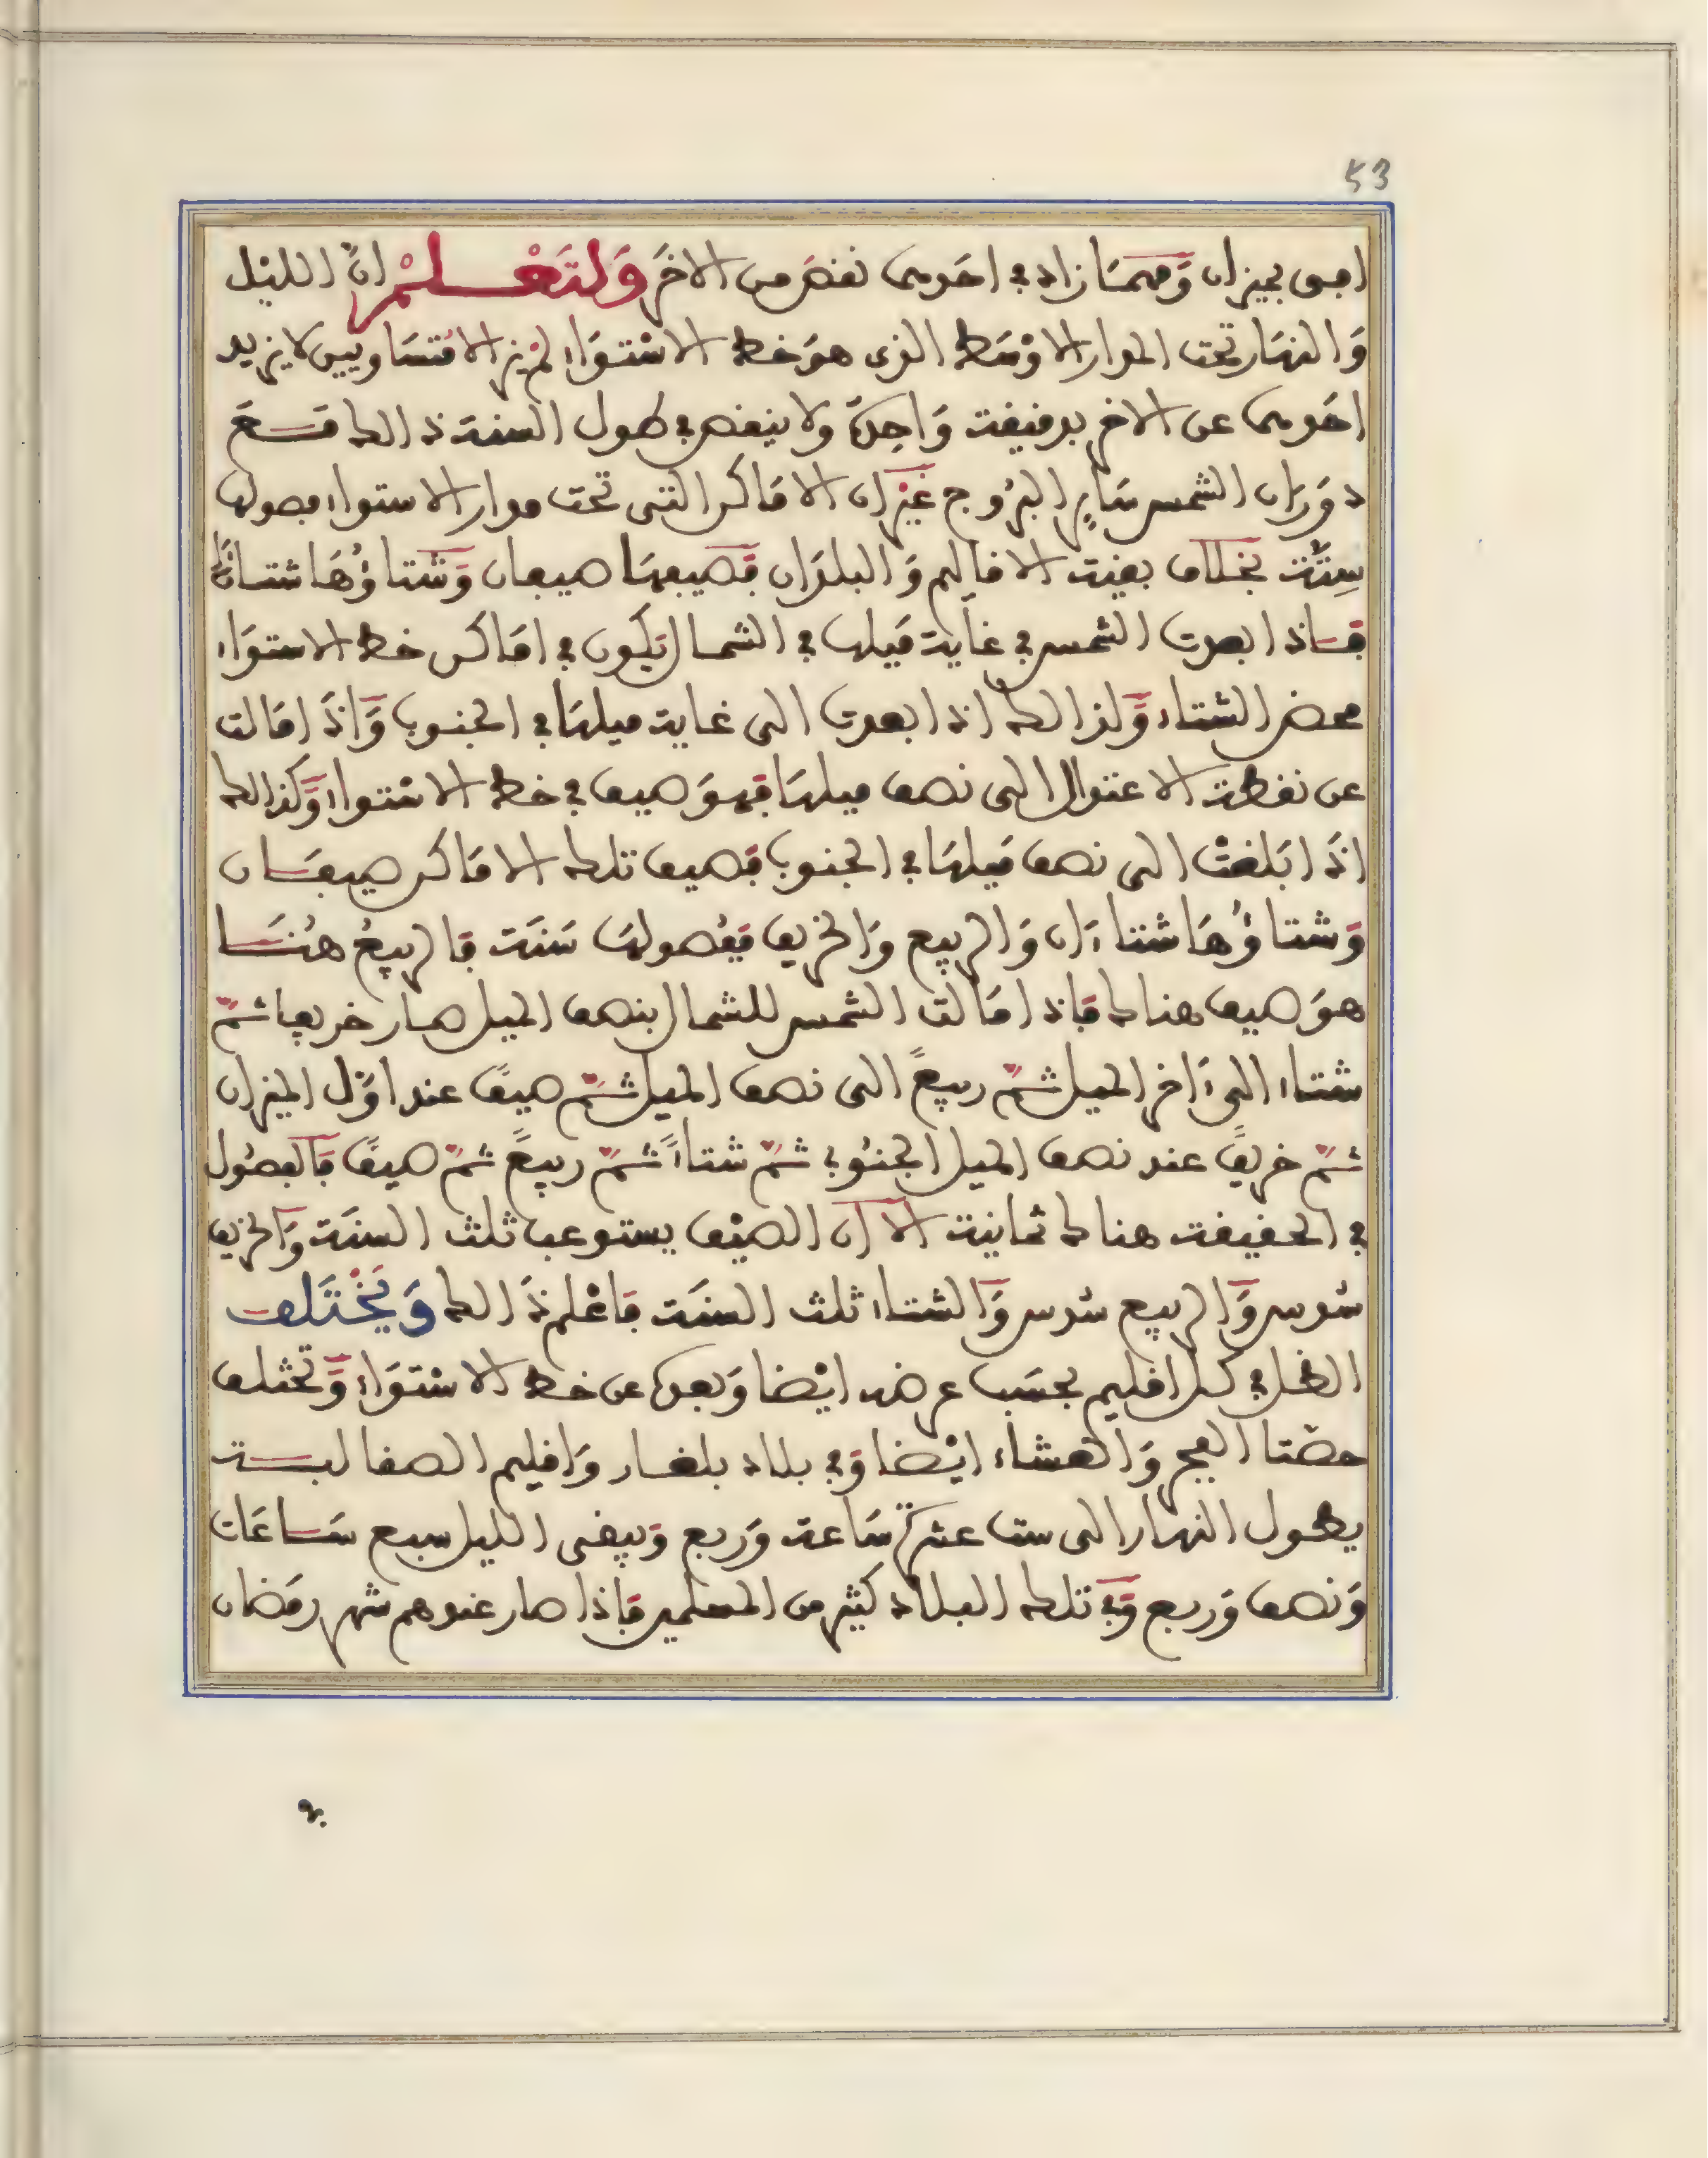 53
بميزان وَمهمَا زاد في احَدهما نقصَ من الاخَر وَلتَعْــلــمْ انَّ الليْل
وَالنهَار تحت المدار الاوْسَط الذى هوَ خط الاسْتوَاءِ لم يزالا مُتسَاويين لا يزيد
احَدهما عن الاخر بدقيقة وَاحِدَة ولا ينقص في طول السنة ذالك مَـعَ
دوَران الشمس سَايِر البرُوج غيْر ان الامَاكن التى تحت مدار الاستواء فصولها
سِتَّة بخلاف بقية الاقاليم وَالبلدَان فَصيفهَا صيفان وَشتاؤُهَا شتاءَان
فـاذا بعدت الشمس في غاية مَيلها في الشمال تكون في امَاكن خط الاستوَاء
محض الشتاء وَكذالك اذا بعدت الى غاية ميلهَا في الجنوب وَاذَا مَالت
عن نقطة الاعتدال الى نصف ميلهَا فهوَ صيف في خط الاسْتواء وَكذالك
اذَا بَلغتْ الى نصف مَيلهَا في الجنوب فَصيف تلك الامَاكن صيفـان
وَشتاؤُهَا شتاءَان وَالربيع وَالخريف فَفُصولهَا سَتَة فَالربيعُ هنـا
هوَ صيف هناك فَاذا مَالت الشمس للشمال بنصف الميل صار خريفا ثمّ
شتاء الى ءَاخر الميل ثمّ ربيعً الى نصف الميل ثمّ صيفً عند اوَّل الميزان
ثمّ خريفً عند نصف الميل الجنُوبي ثمّ شتاءً ثمّ ربيعً ثمّ صيفً فَالفصُول
في الحقيقة هناك ثمانية الا ان الصيْف يستوعب ثلث السنَة وَالخريف
سُدس وَالربيع سُدس وَالشتاء ثلث السنَة فَاعْلم ذَالك وَيَخْتَلف
الظل في كل اقليم بحسَب عرضه ايْضا وَبعده عن خط الاسْتوَاءِ وَتختلف
حصَتا الفجر وَالعشاء ايْضا وَفي بلاد بلغـار وَاقليم الصقالبـة
يطـول النهار الى ستة عشرَة سَاعة وَربع وَيبقى الليل سبع سَـاعَات
وَنصف وَربع وَفي تلك البلاد كثير من المسلمين فَاذا صار عندهم شهر رمَضان